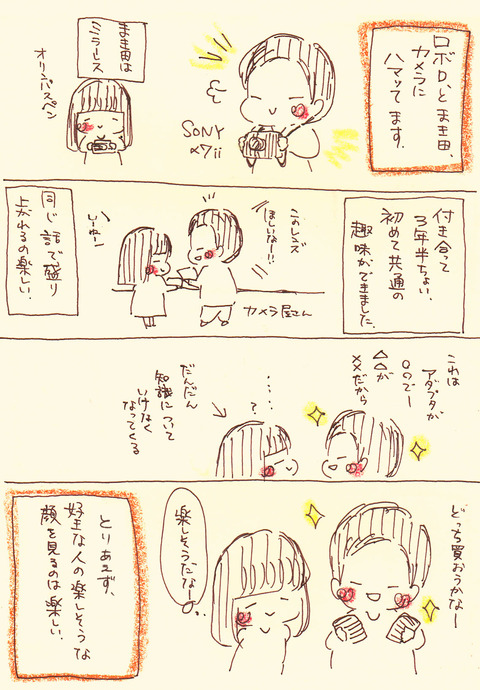 ロボロンとまき田、
カメラに
ハマッてます。
SONY
α7ii
まき田は
ミラーレス
オリンパスペン
付き合って
3年半ちょい、
初めて共通の
趣味ができました。
このレンズ
ほしいなー!!
いーねー
カメラ屋さん
同じ話で盛り
上がれるの楽しい。
これは
アダプタが
〇〇でー
△△が
××だから
・・・・
?
だんだん
知識について
いけなく
なってくる
どっち買おうかなー
楽しそうだなー。
とりあえず、
好きな人の楽しそうな
顔を見るのは楽しい。